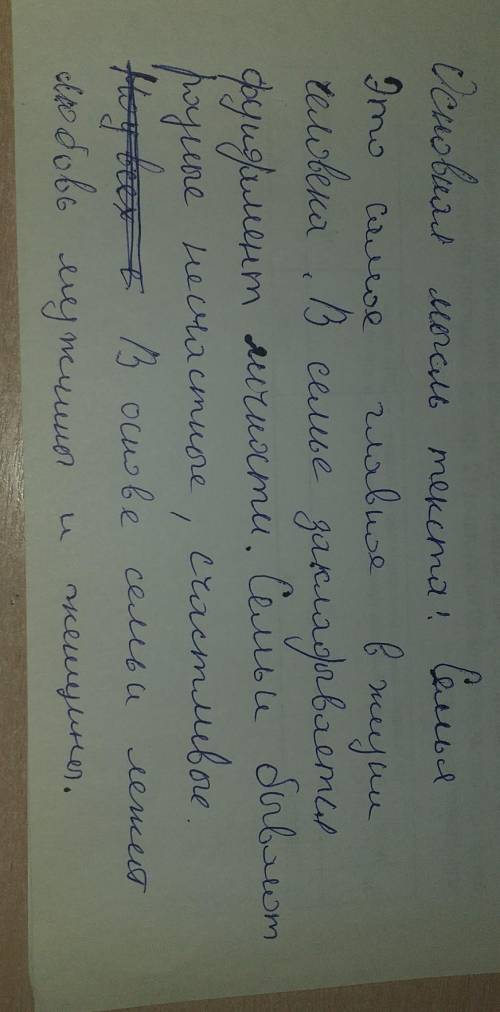 Основная мысль текста: Семья
Это самое главное в жизни
человека. В семье закладывается
фундамент личности. Семьи бывают
разные несчастные, счастливые.
В основе семьи лежит
любовь мужчины и женщины.